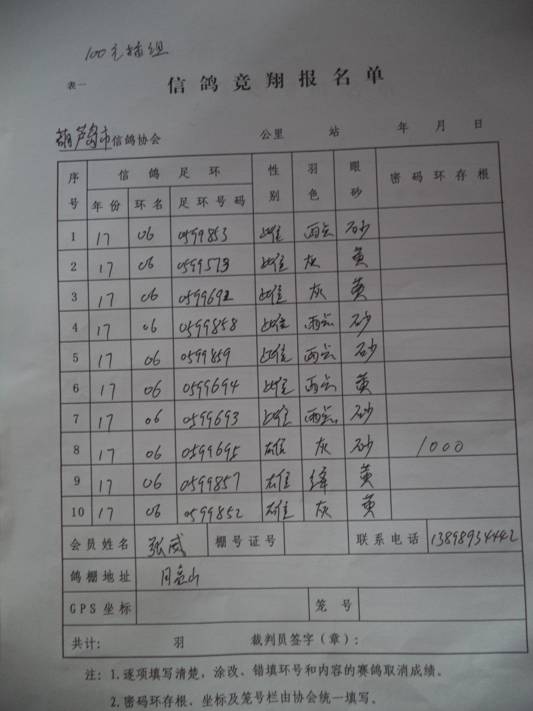 100元插组
表一
信鸽竞翔报名单
葫芦岛市信鸽协会 公里 站 年 月 日
序号 信鸽足环 性别 羽色 眼砂 密码环存根
年份 环名 足环号码
1 17 06 0599853 雌 雨点 砂
2 17 06 0599573 雌 灰 黄
3 17 06 0599692 雌 灰 黄
4 17 06 0599858 雌 雨点 砂
5 17 06 0599859 雌 雨点 砂
6 17 06 0599694 雌 雨点 黄
7 17 06 0599693 雌 雨点 砂
8 17 06 0599695 雄 灰 砂 1000
9 17 06 0599857 雄 绛 黄
10 17 06 0599852 雄 灰 黄
会员姓名 张威 棚号证号 联系电话 13898934442
鸽棚地址
GPS坐标 笼号
共计: 羽 裁判员签字(章):
注: 1.逐项填写清楚,涂改、错填环号和内容的赛鸽取消成绩。
2.密码环存根、坐标及笼号栏由协会统一填写。